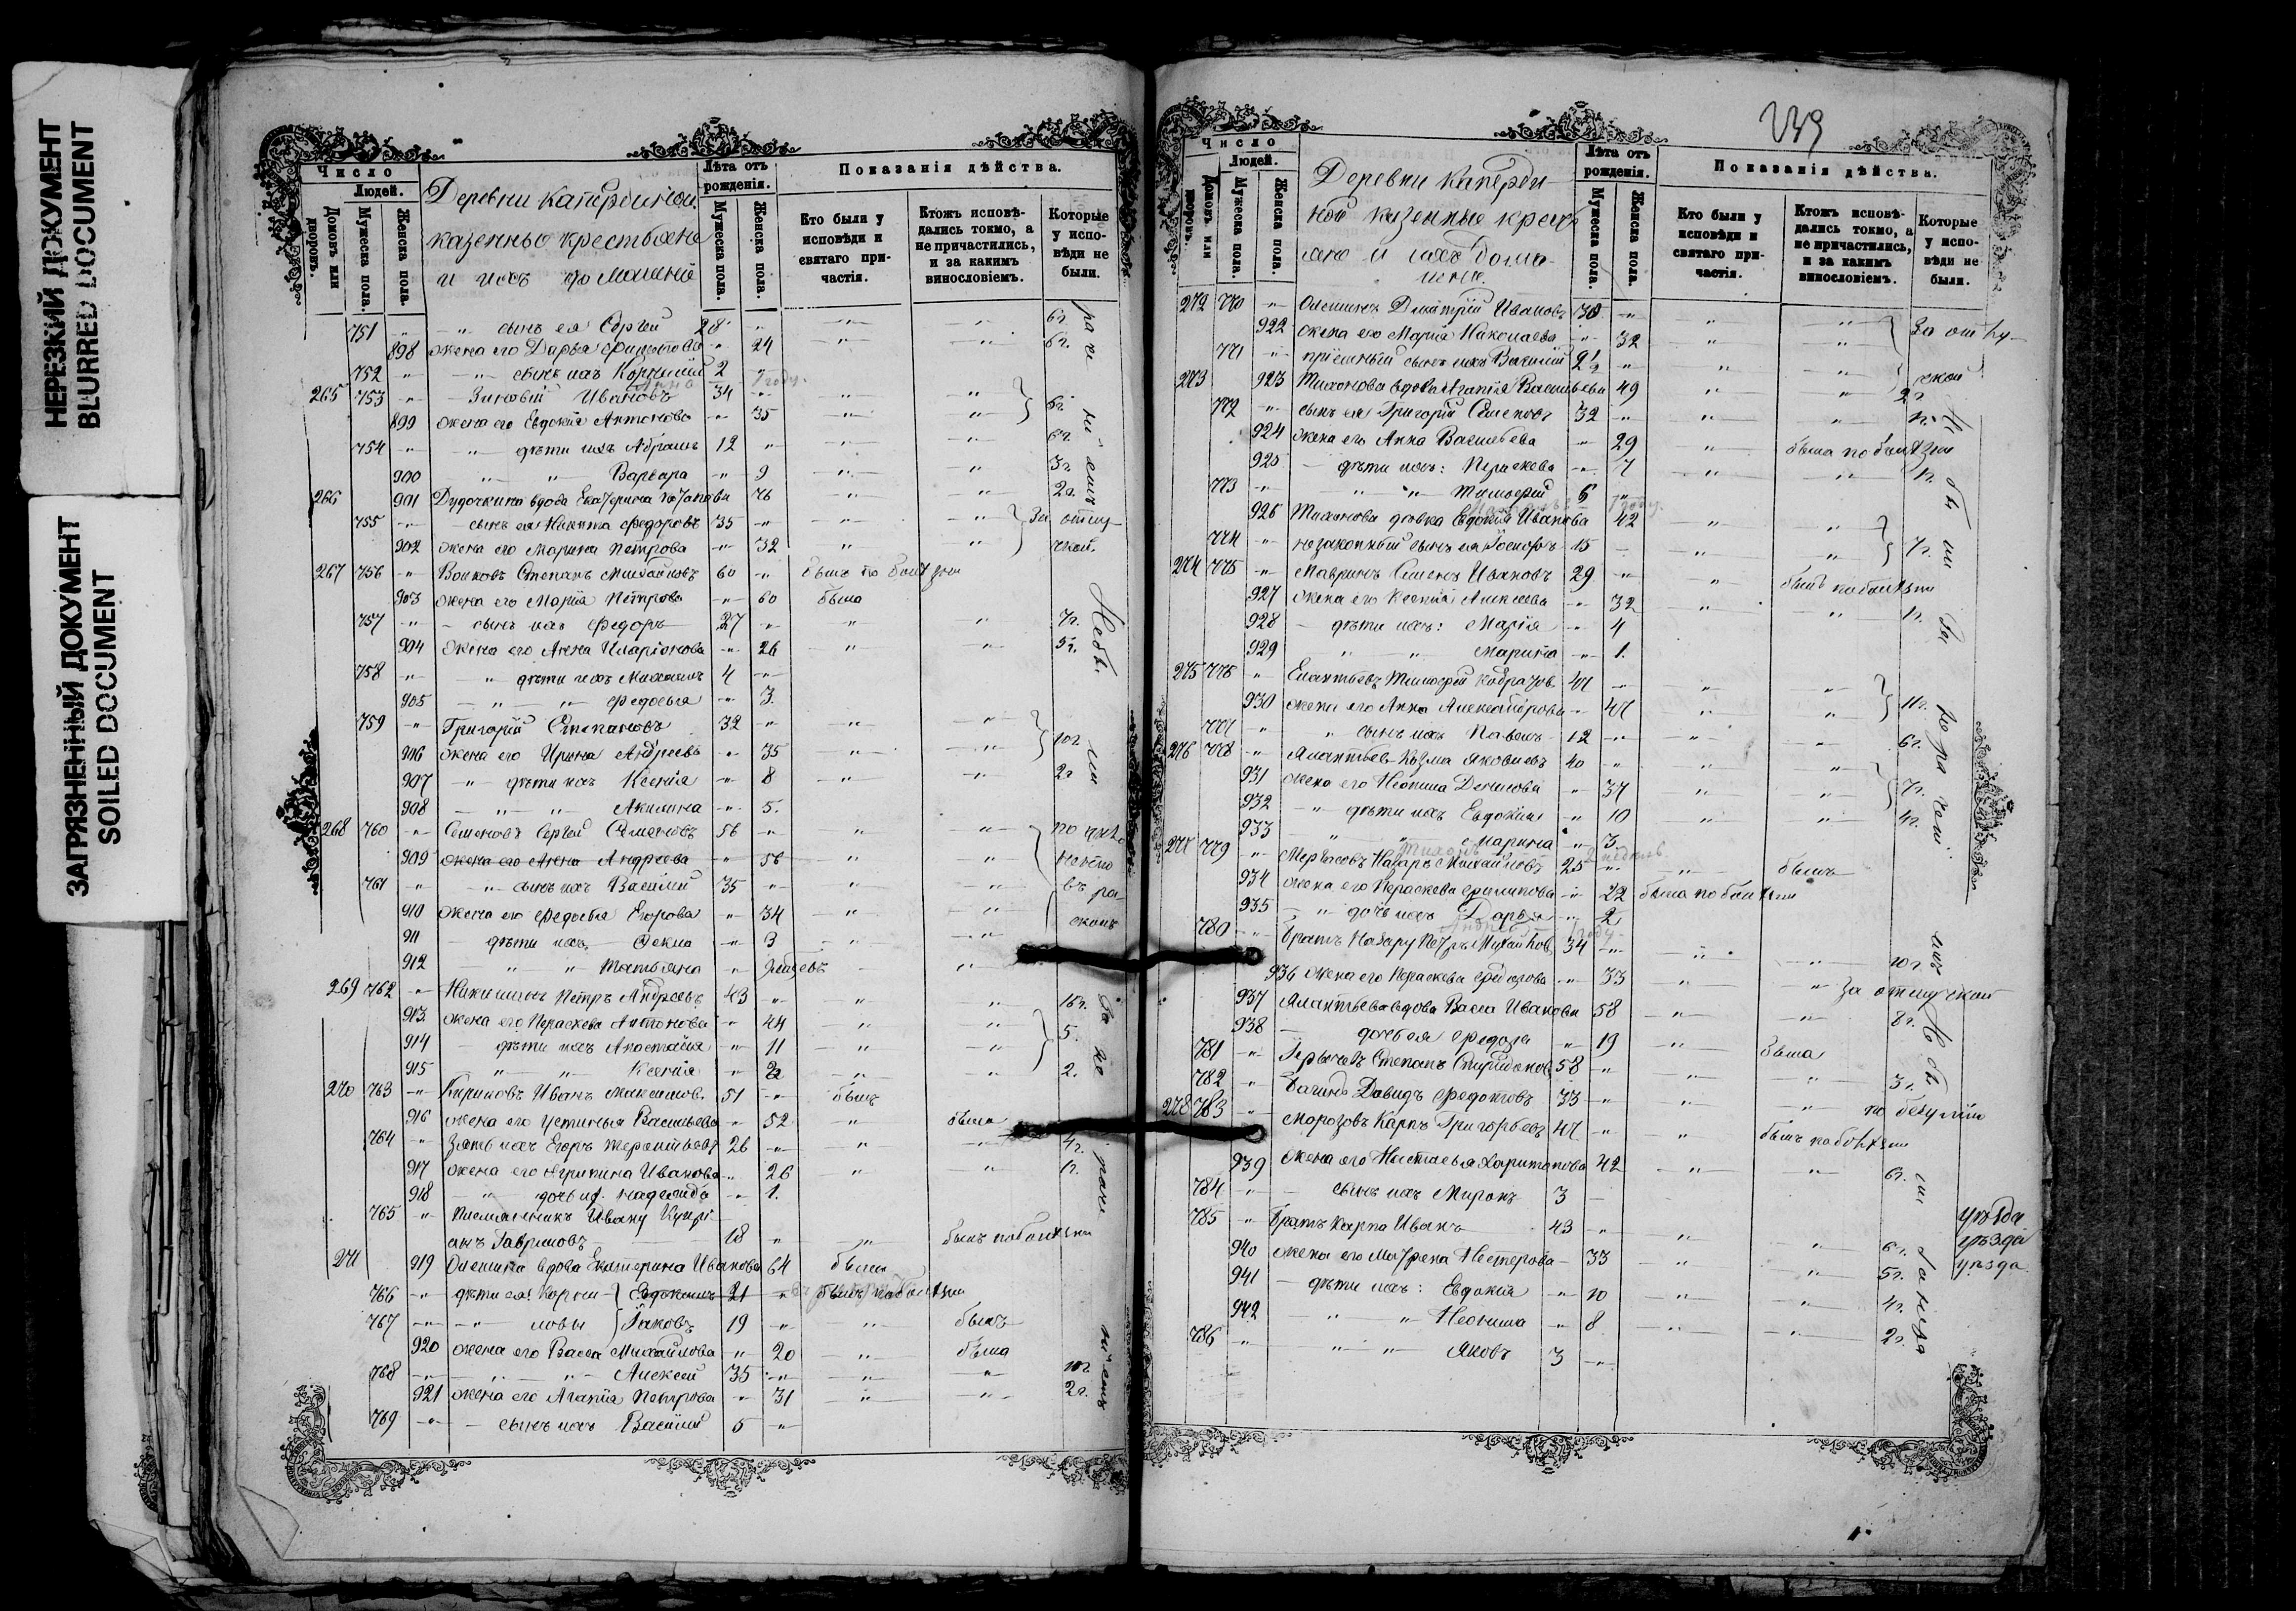 НЕРЕЗКИЙ ДОКУМЕНТ
BLURRED DOCUMENT
ЗАГРЯЗНЕННЫЙ ДОКУМЕНТ
SOILED DOCUMENT
Число
Людей.
Домовъ или дворовъ.
Мужеска пола.
Женска пола.
Деревни Капердиной
казенные крестьяне
и ихъ домашніе
Лѣта отъ рожденія.
Мужеска пола.
Женска пола.
Показанія дѣйства.
Кто были у исповѣди и святаго причастія.
Ктожъ исповѣдались токмо, а не причастились, и за какимъ винословіемъ.
Которые у исповѣди не были.
751 " сынъ ея Сергѣй 28 " 6г.
898 жена его Дарья Филипова " 24 6г.
752 " сынъ ихъ 2
265 753 " Зиновій Ивановъ 34 "
899 жена его Евдокія Антонова " 35 6г.
754 " дѣти ихъ Абрамъ 12 " 6г.
900 " " Варвара " 9 3г.
266 901 Дудочкина вдова Екатерина Потапова 76 2г.
755 " сынъ ея Никита Федоровъ 35 " За отлу-
902 жена его Марина Петрова " 32 чкой.
267 756 " Волковъ Степанъ Михайловъ 60 " былъ по болѣзни
903 жена его Марія Петрова " 60 была
757 " сынъ ихъ Федоръ 27 " 7г.
904 жена его Анна Иларіонова " 26 5г.
758 " дѣти ихъ Михаилъ 4 "
905 " " Федосья " 3.
759 " Григорій Степановъ 32 "
906 жена его Ирина Андреева " 35 10г
907 " дѣти ихъ Ксенія " 8 2г
908 " " Акилина " 5.
268 760 " Семеновъ Сергѣй Семеновъ 56 "
909 жена его Анна Андреева " 56
761 " сынъ ихъ Василій 35 "
910 жена его Федосья Егорова " 34
911 дѣти ихъ Фекла " 3
912 " " Татьяна "
269 762 " Никишинъ Петръ Андреевъ 43 " 16г.
913 жена его Параскева Антонова " 44
914 дѣти ихъ Анастасія " 11 5.
915 " " Ксенія " 2 2.
270 763 " Кириловъ Иванъ Максимов. 51 " былъ
916 жена его Устинья Васильева " 52 " была
764 " Зять ихъ Егоръ Терентьевъ 26 " 4г.
917 жена его Агрипина Иванова " 26 1г.
918 " дочь их. Надежда " 1.
765 " Племянникъ Ивану Купрі-
анъ Гавриловъ 18 " былъ по болѣзни
271 919 Олешина вдова Екатерина Иванова 64 была
766 " дѣти ея: Корни- Евдокимъ 21 " былъ по болѣзни
767 " ловы Іаковъ 19 " былъ
920 жена его Васса Михайлова " 20 была
768 " " " Алексѣй 35 " 10г
921 жена его Агапія Петрова " 31 2г.
769 " сынъ ихъ Василій 5 "
239
Число
Людей.
Домовъ или дворовъ.
Мужеска пола.
Женска пола.
Деревни Каперди-
ной казенные кресть
яне и ихъ дома-
шніе.
Лѣта отъ рожденія.
Мужеска пола.
Женска пола.
Показанія дѣйства.
Кто были у исповѣди и святаго причастія.
Ктожъ исповѣдались токмо, а не причастились, и за какимъ винословіемъ.
Которые у исповѣди не были.
272 770 " Олешинъ Дмитрій Ивановъ 38 "
922 жена его Марія Николаева " 32 За отлу-
771 " пріемный сынъ ихъ Василій "
273 923 Тихонова вдова Агапія Васильева 49 2г
772 " сынъ ея Григорій Семеновъ 32 "
924 жена его Анна Васильева " 29 была по болѣзни
925 дѣти ихъ: Параскева " 7 1г.
773 " " " Тимофей 5 "
926 Тихонова дѣвка Евдокія Иванова 42
774 " незаконный сынъ ея Іосифъ 15 7г.
274 775 " Мавринъ Семенъ Ивановъ 29 " былъ по болѣзни
927 жена его Ксенія Алексеева " 32 1г.
928 дѣти ихъ: Марія " 4
929 " " Марина " 1.
275 776 " Тимофей 47 "
930 жена его Анна Александрова " 47 11г.
777 " " сынъ ихъ Павелъ 12 " 6г.
276 778 " Алантьевъ Кузма Яковлевъ 40 "
931 жена его Неонила Денисова " 37 7г.
932 " дѣти ихъ Евдокія " 10 4г.
933 " " Марина " 3.
277 779 " Назаръ Михайловъ 25 " былъ
934 жена его Параскева Филипова " 22 была по болѣзни
935 " дочь ихъ Дарья " 2
780 " братъ Назару Петръ Михайлов. 34 " 10г.
936 жена его Параскева Федорова " 33 " за отлучкой
937 Алантьева вдова Васса Иванова 58 8г.
938 дочь ея Федора " 19 была
781 " Степанъ Спиридонов. 58 " 3г.
782 " Давидъ Федотовъ 33 " по безумію
278 783 " Морозовъ Карпъ Григорьевъ 47 " былъ по болѣзни
939 жена его Настасья Харитонова 42 6г.
784 " сынъ ихъ Миронъ 3
785 " братъ Карпа Иванъ 43 " 6г.
940 жена его Матрена Нестерова 33 5г.
941 дѣти ихъ: Евдокія " 10 4г.
942 " " Неонила " 8 2г.
786 " " " Яковъ 3 "
уѣзда
уѣзда
уѣзда